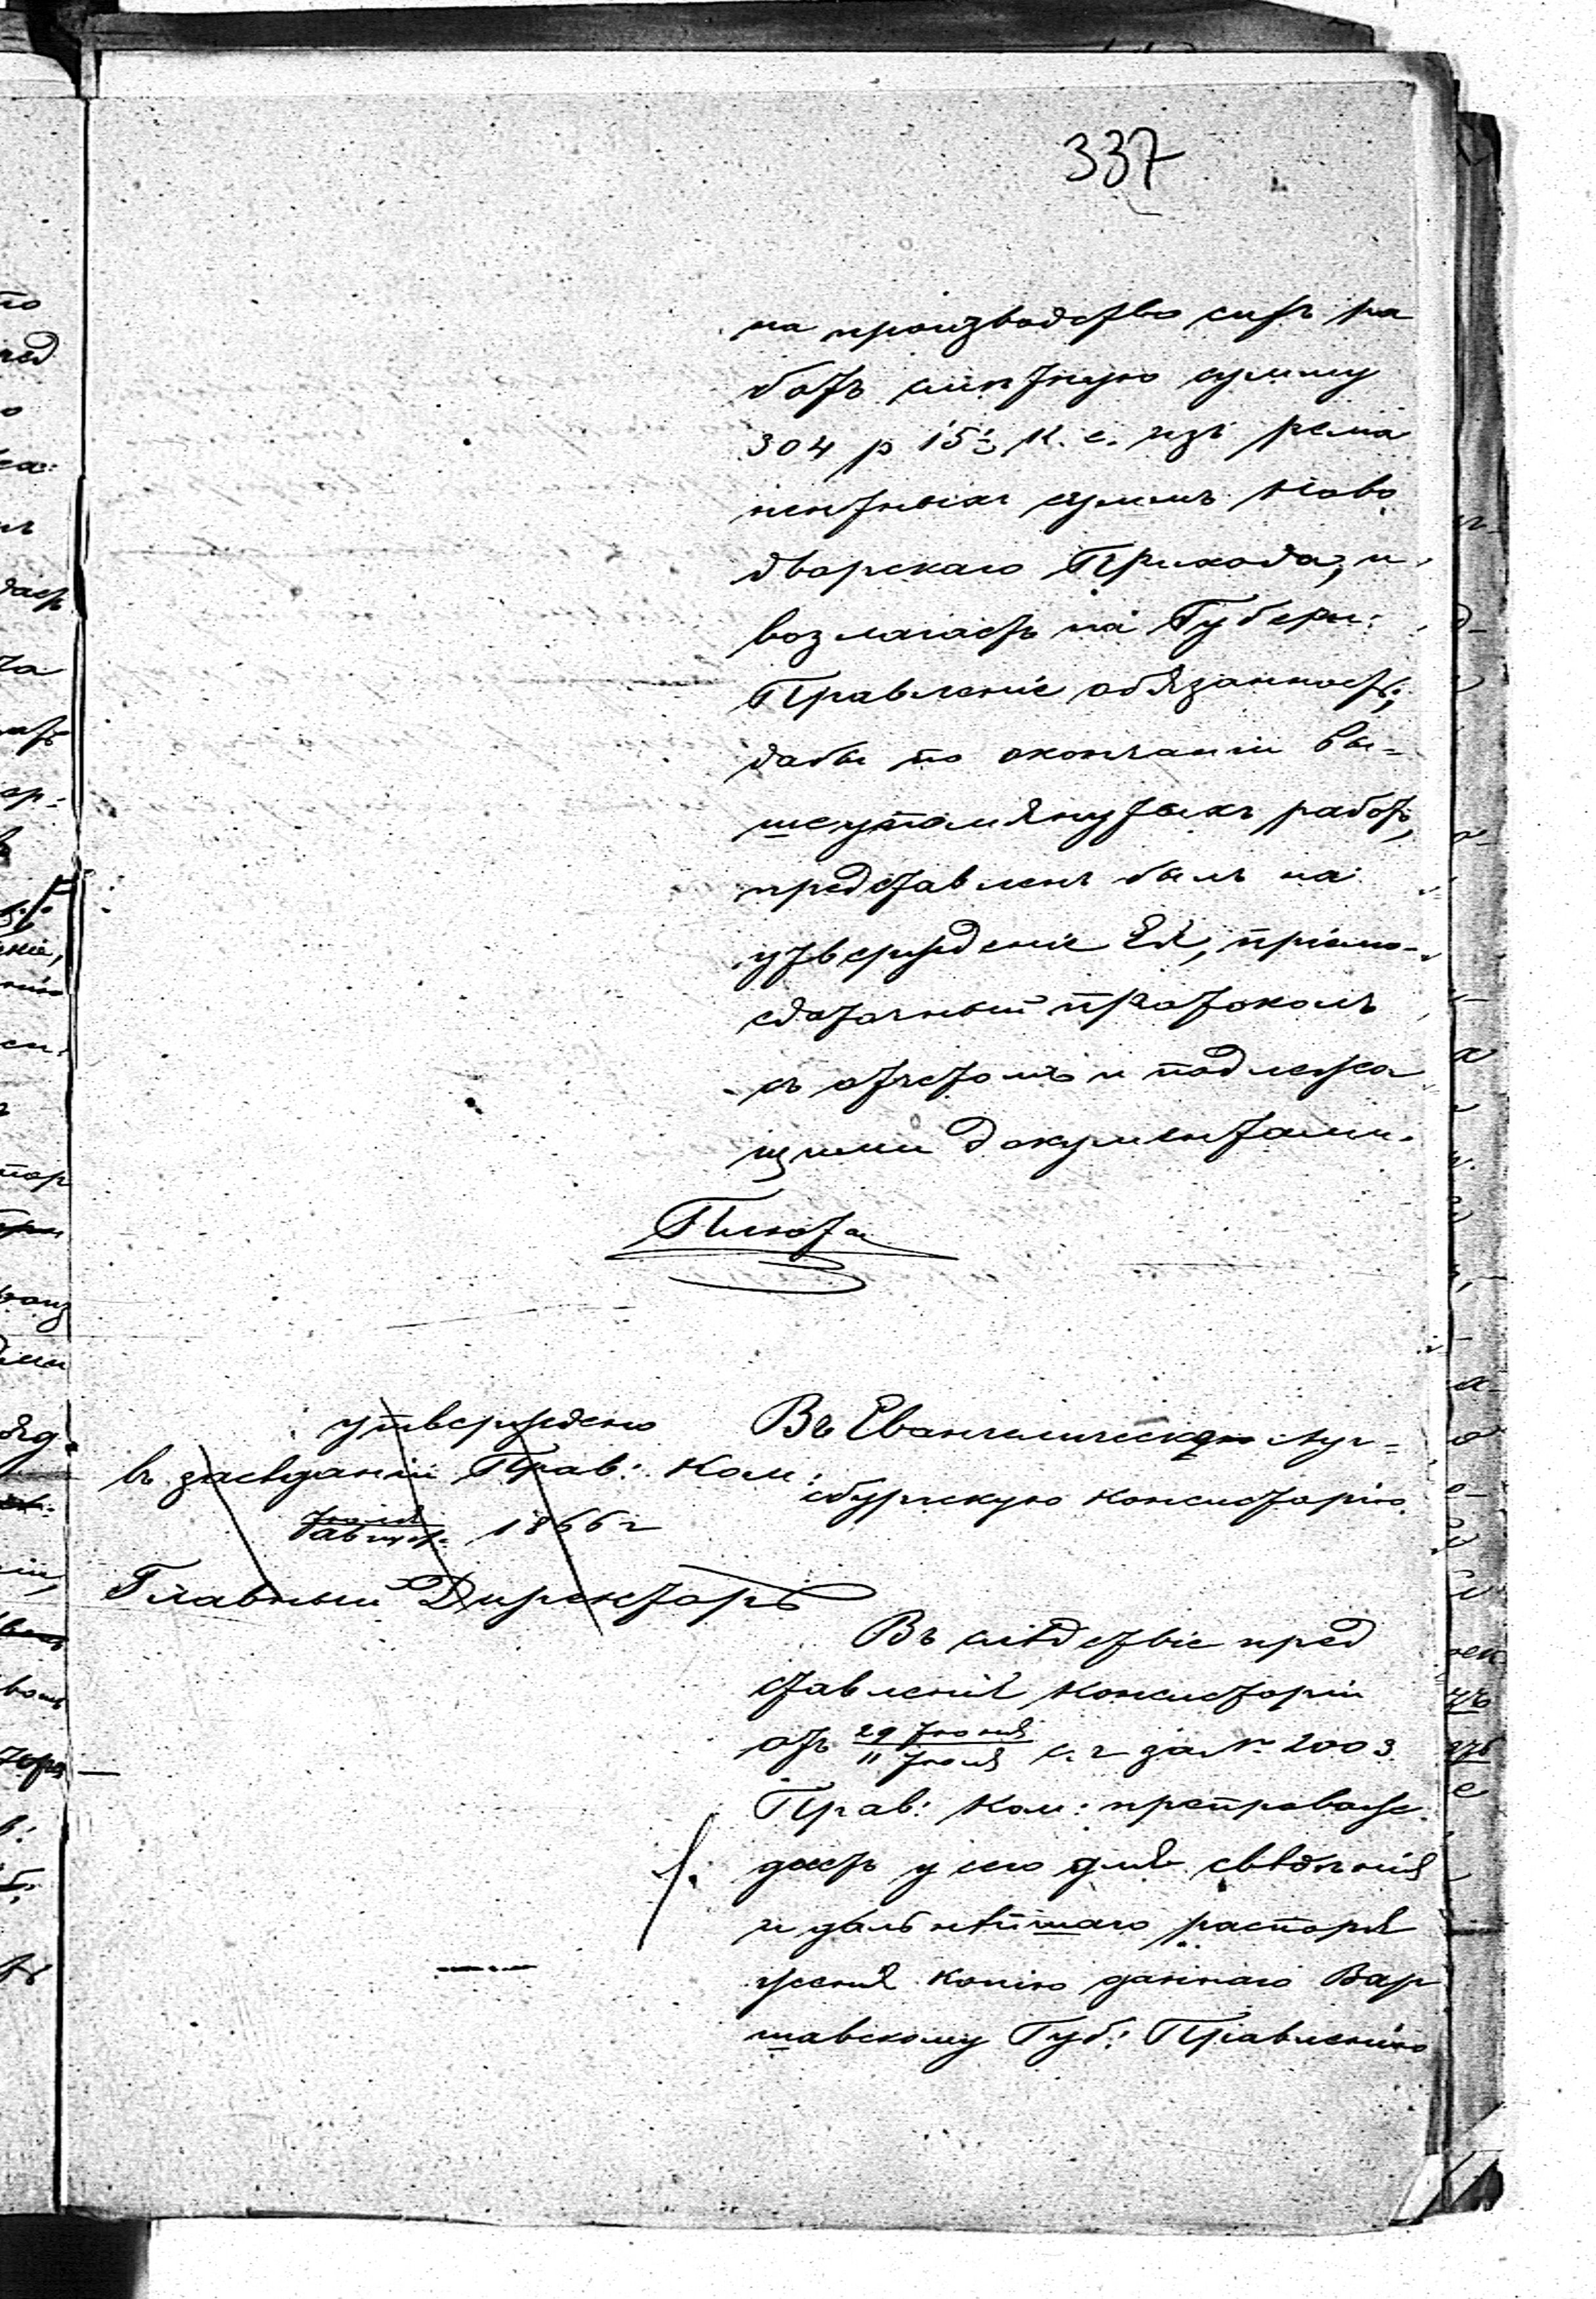 337
на производство сихъ ра
ботъ смѣтную сумму
304 р 15½ к. с. изъ рема
нентныхъ суммъ Ново
дворскаго Прихода, и
возлагаетъ на Губерн:
Правленіе обязанность,
дабы по окончаніи вы-
шеупомянутыхъ работъ,
представленъ былъ на
утвержденіе Ея, пріемо-
сдаточный протоколъ
съ отчетомъ и подлежа
щими документами.
утверждено
въ засѣданіи Прав: Ком:
Іюля
Август. 1866 г
Главный Директоръ
Въ Евангелическо Аугс-
бургскую Консисторію.
Въ слѣдствіе пред
ставленія Консисторіи
отъ 29 Іюня / 11 Іюля с. г за № 2003
Прав: Ком: препровож
даетъ у сего для свѣдѣнія
и дальнѣйшаго распоря
женія копію даннаго Вар
шавскому Губ: Правленію